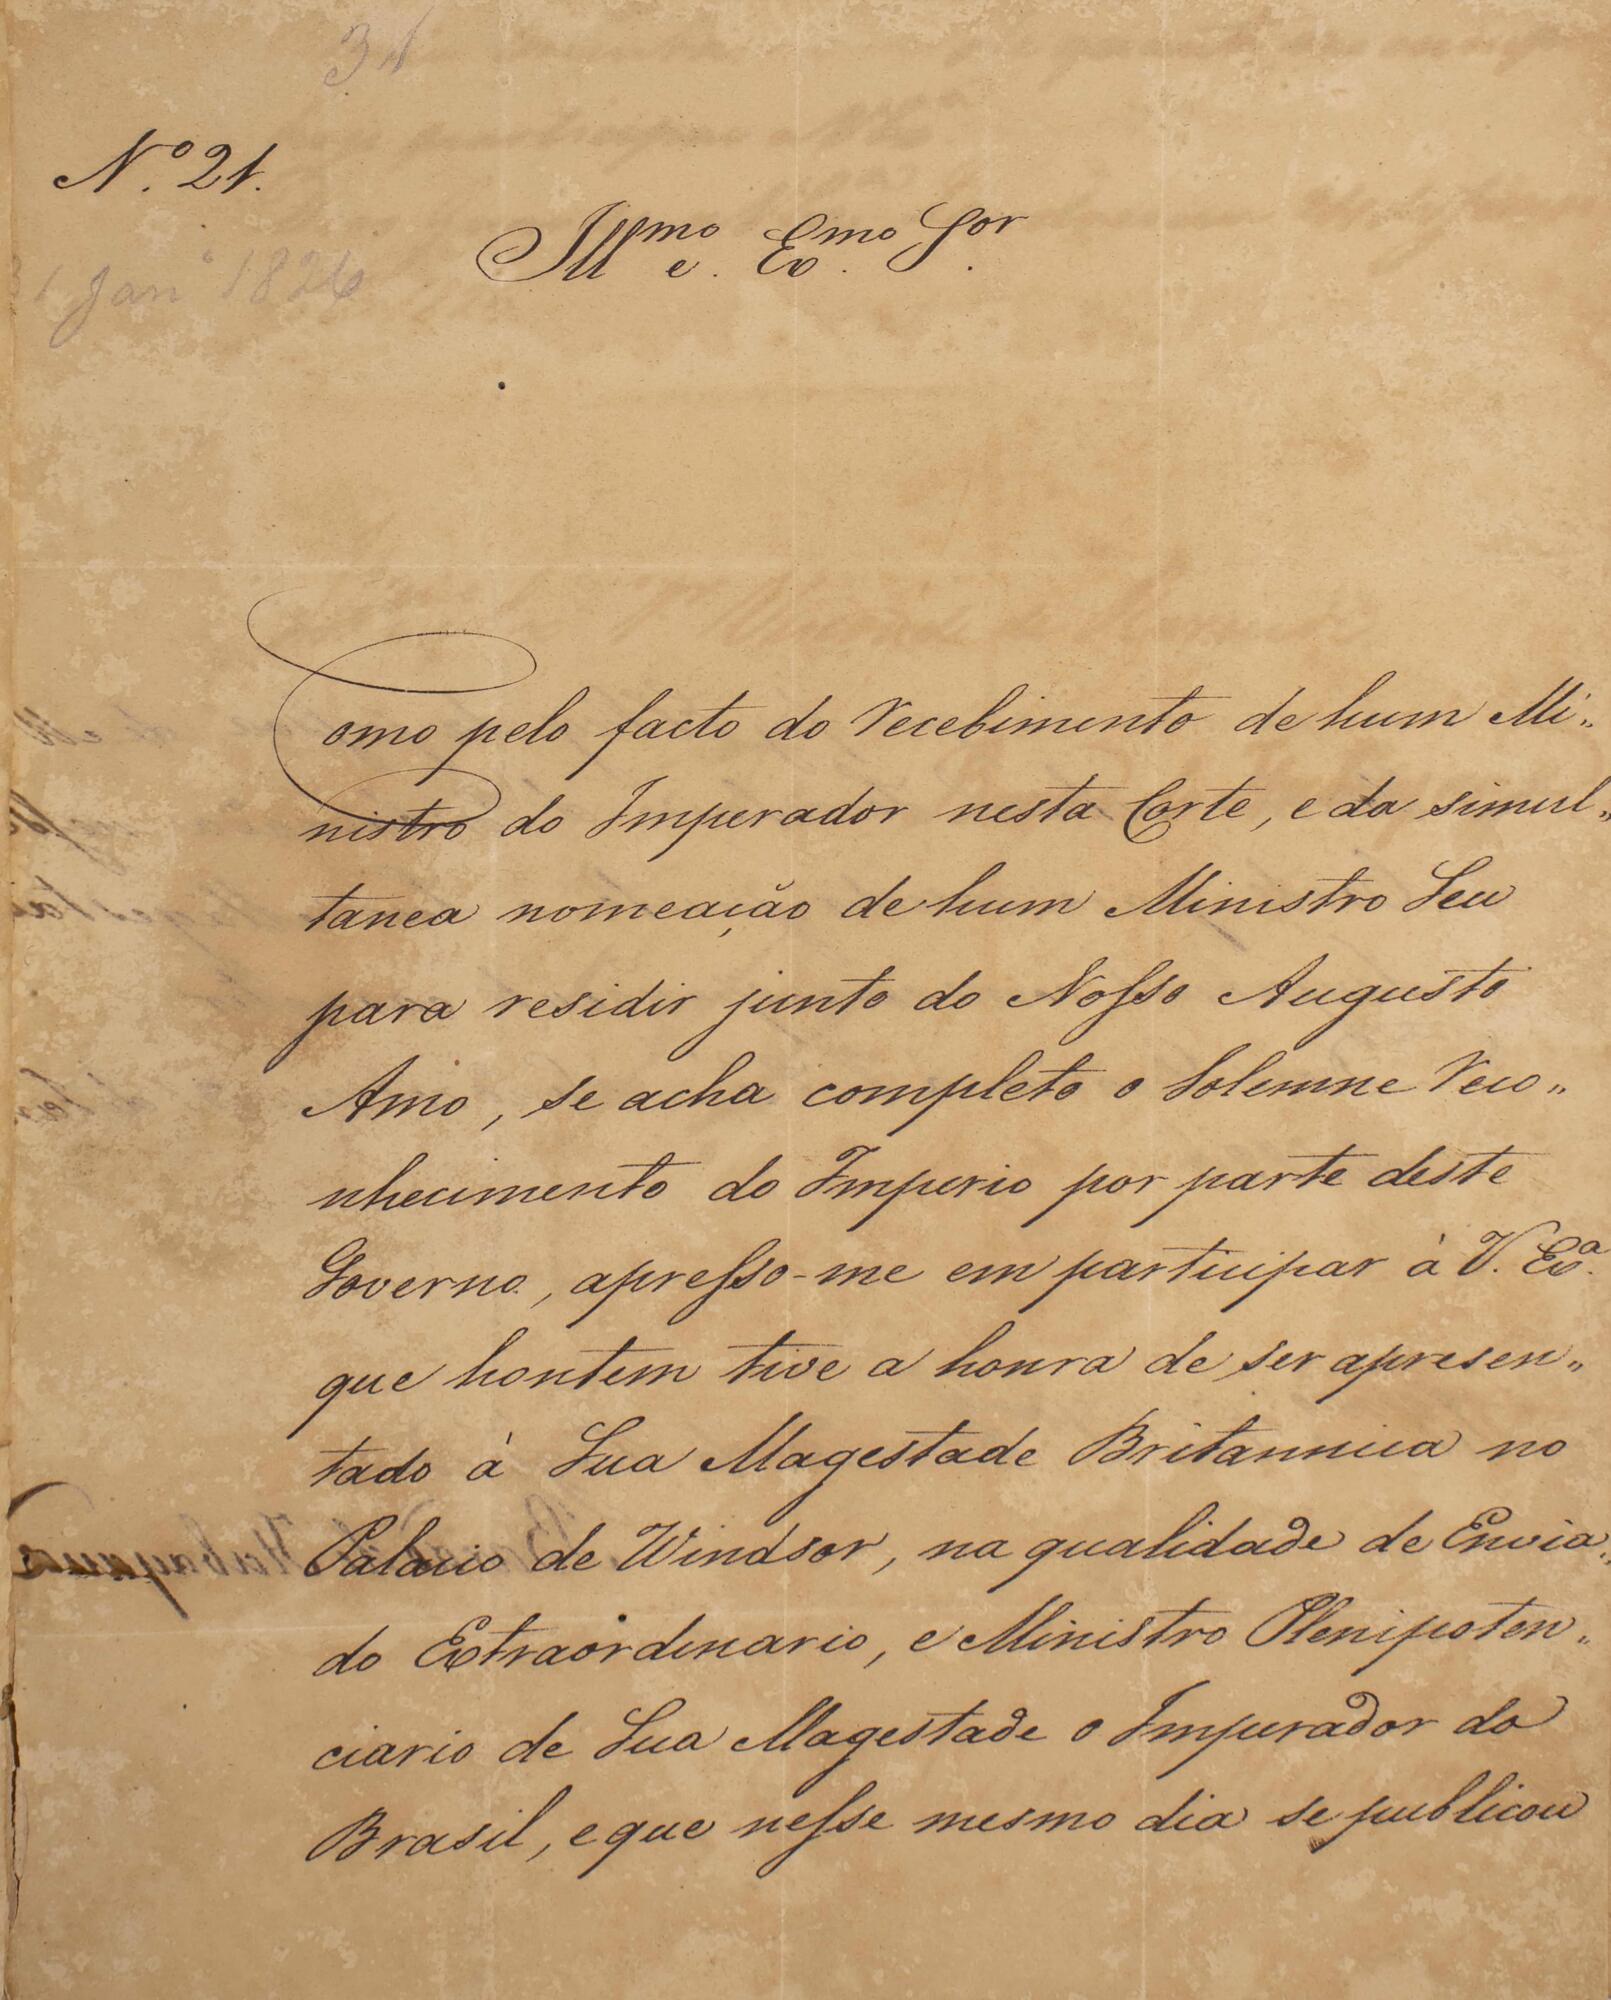 31
Nº 21.
Illmo e Exmo Sor.
31 Janº 1826
Como pelo facto do recebimento de hum Mi„
nistro do Imperador nesta Corte, e da simul„
tanea nomeação de hum Ministro Seu
para residir junto do Nosso Augusto
Amo, se acha completo o solemne reco„
nhecimento do Imperio por parte deste
Governo, apresso-me em participar à V. Exª.
que hontem tive a honra de ser apresen„
tado à Sua Magestade Britannica no
Palacio de Windsor, na qualidade de Envia„
do Extraordinario, e Ministro Plenipoten„
ciario de Sua Magestade o Imperador do
Brasil, e que nesse mesmo dia se publicou